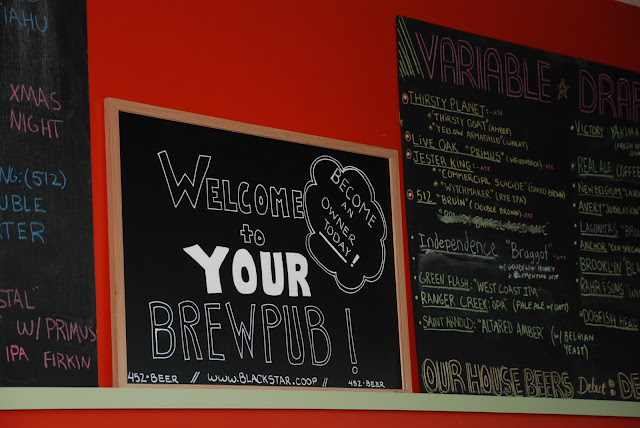 IAHU
XMAS
NIGHT
NG: (512)
UBLE
TER
STAL"
W/ PRIMUS
IPA FIRKIN
WELCOME
to
YOUR
BREWPUB!
BECOME
AN
OWNER
TODAY!
452-BEER // WWW.BLACKSTAR.COOP // 452-BEER
VARIABLE ☆ DRAF
THIRSTY PLANET: -ATX
"THIRSTY GOAT" (AMBER)
"YELLOW ARMADILLO" (WHEAT)
LIVE OAK "PRIMUS" (WEIZENBOCK) -ATX
JESTER KING: -ATX
"COMMERCIAL SUICIDE" (OAKED BROWN)
"WYTCHMAKER" (RYE IPA)
512 "BRUIN" (DOUBLE BROWN) -ATX
Independence "Braggot"
W/ GOODFLOW HONEY
GREEN FLASH: "WEST COAST IPA"
RANGER CREEK: "OPA" (PALE ALE W/ OATS)
SAINT ARNOLD: "ALTARED AMBER" (W/ BELGIAN
YEAST)
OUR HOUSE BEERS Debut: DE
VICTORY YAKIMA
REAL ALE: COFFEE
NEW BELGIUM
AVERY: "JUBILATION
LAGUNITAS "BROW
ANCHOR: "OUR SPECIAL
BROOKLYN
RAHR & SONS
DOGFISH HEAD